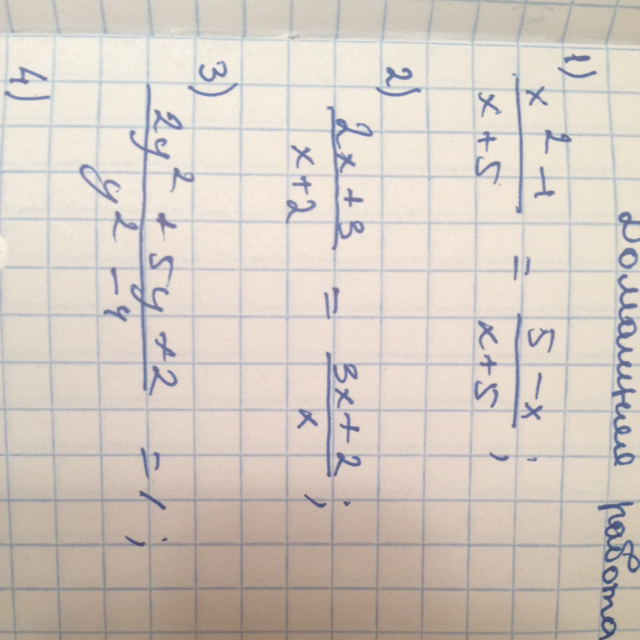 Домашнее работа
1) (x² - 1)/(x + 5) = (5 - x)/(x + 5) ;
2) (2x + 3)/(x + 2) = (3x + 2)/x ;
3) (2y² + 5y + 2)/(y² - 4) = 1 ;
4)